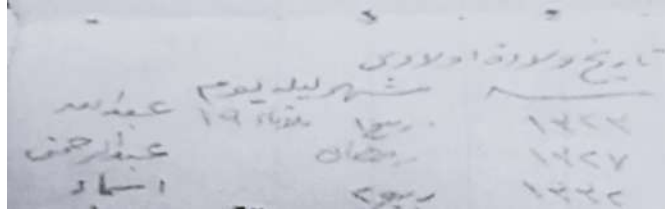 تاريخ ولادة اولادي
سنه شهر ليله يوم
١٣٢٣ ربيع١ ثلاثاء ١٩ عبدالله
١٣٢٧ رمضان عبدالرحمن
١٣٣٢ ربيع٢ اسماء